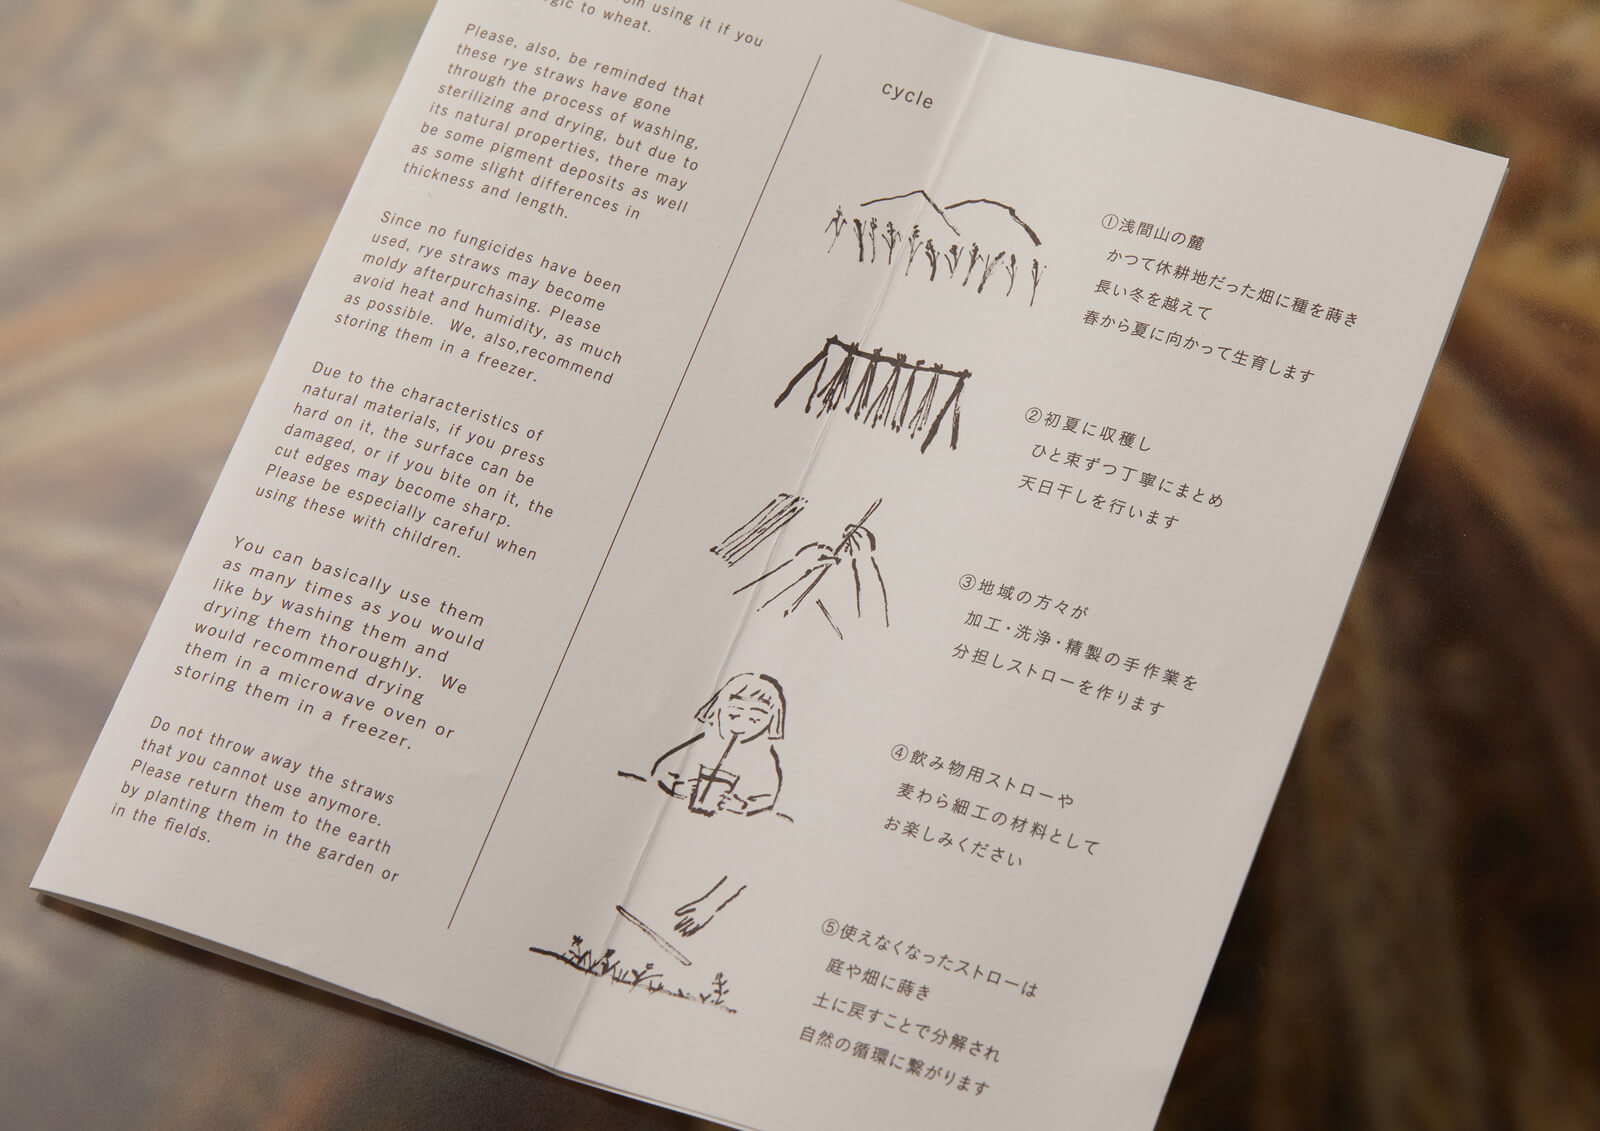 using it if you
to wheat.
Please, also, be reminded that
these rye straws have gone
through the process of washing,
sterilizing and drying, but due to
its natural properties, there may
be some pigment deposits as well
as some slight differences in
thickness and length.
Since no fungicides have been
used, rye straws may become
moldy afterpurchasing. Please
avoid heat and humidity, as much
as possible. We, also,recommend
storing them in a freezer.
Due to the characteristics of
natural materials, if you press
hard on it, the surface can be
damaged, or if you bite on it, the
cut edges may become sharp.
Please be especially careful when
using these with children.
You can basically use them
as many times as you would
like by washing them and
drying them thoroughly. We
would recommend drying
them in a microwave oven or
storing them in a freezer.
Do not throw away the straws
that you cannot use anymore.
Please return them to the earth
by planting them in the garden or
in the fields.
cycle
①浅間山の麓
かつて休耕地だった畑に種を蒔き
長い冬を越えて
春から夏に向かって生育します
②初夏に収穫し
ひと束ずつ丁寧にまとめ
天日干しを行います
③地域の方々が
加工・洗浄・精製の手作業を
分担しストローを作ります
④飲み物用ストローや
麦わら細工の材料として
お楽しみください
⑤使えなくなったストローは
庭や畑に蒔き
土に戻すことで分解され
自然の循環に繋がります